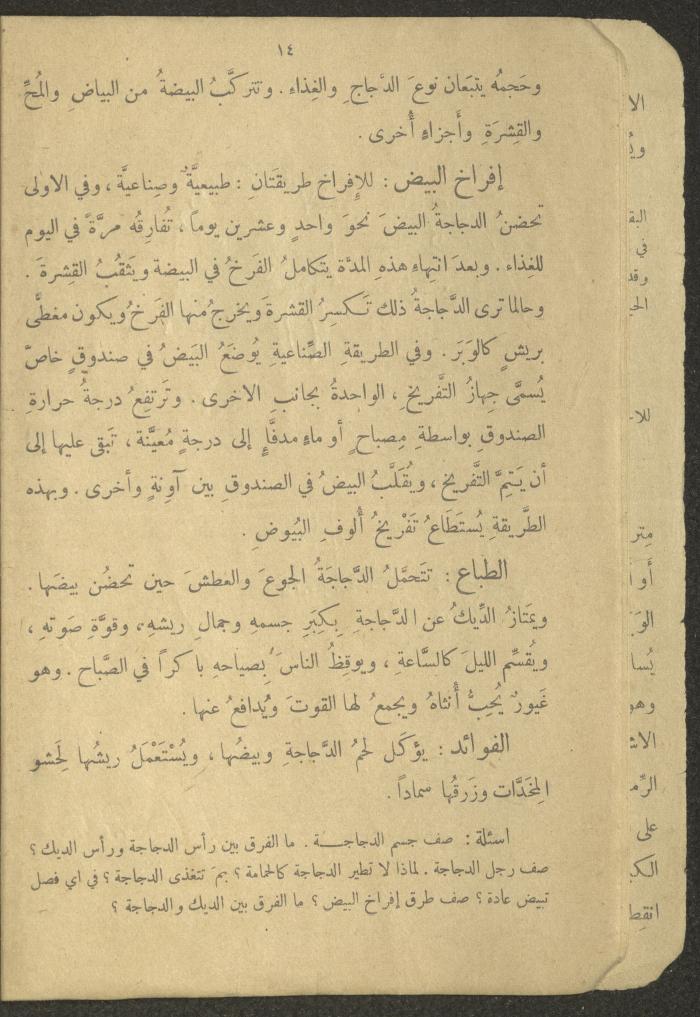 ١٤
وحَجمُه يتبَعَان نوعَ الدَّجاجِ والغِذاء . وتتركَّبُ البيضةُ من البياضِ والمُحِّ
والقِشرَةِ وأَجزاءٍ أُخرى .
إفراخ البيض : للإِفراخ طريقَتَانِ : طبيعيَّةٌ وصِناعيَّة ، وفي الاولى
تحضنُ الدجاجةُ البيضَ نحوَ واحدٍ وعشرين يوماً ، تُفارِقُه مرَّةً في اليوم
للغِذاء . وبعدَ انتِهاءِ هذهِ المدَّة يتَكاملُ الفَرخُ في البيضة ويَثقُبُ القِشرةَ .
وحالما ترى الدَّجاجةُ ذلك تَكسِرُ القشرةَ ويخرجُ منها الفَرخُ ويكون مغطًّى
بريشٍ كالوَبَرَ . وفي الطريقةِ الصِّناعيةِ يُوضَعُ البَيضُ في صندوقٍ خاصّ
يُسمَّى جِهازُ التَّفريخِ ، الواحدةُ بجانبِ الاخرى . وتَرتفِعُ درجةُ حرارةِ
الصندوقِ بواسطةِ مِصباحٍ أو ماءٍ مدفَّإٍ إلى درجةٍ مُعيَّنة ، تَبقى عليها إلى
أن يَتِمَّ التَّفريخ ، ويُقَلَّبُ البيضُ في الصندوقِ بين آوِنةٍ وأخرى . وبهذه
الطَّريقةِ يُستَطَاعُ تَفْريخُ أُلوفِ البُيوضِ .
الطباع : تتَحمَّلُ الدَّجاجَةُ الجوعَ والعطشَ حين تحضُن بيضَها .
ويمتَازُ الدِّيكُ عن الدَّجاجةِ بِكبَرِ جسمهِ وجمال ريشهِ ، وقوَّةِ صَوتهِ ،
ويُقسِّم الليلَ كالسَّاعةِ ، ويوقِظُ الناسَ بِصياحهِ باكراً في الصَّباح . وهو
غَيورٌ يُحِبُّ أُنثاهُ ويجمعُ لها القوتَ ويُدافعُ عنها .
الفوائد : يؤكَل لحمُ الدَّجاجةِ وبيضُها ، ويُسْتَعْمَلُ ريشُها لِحَشو
المِخَدَّات وزَرقُها سماداً .
اسئلة : صف جسم الدجاجـة . ما الفرق بين رأس الدجاجة ورأس الديك ؟
صف رجل الدجاجة . لماذا لا تطير الدجاجة كالحمامة ؟ بمَ تتغذى الدجاجة ؟ في اي فصل
تبيض عادة ؟ صف طرق إفراخ البيض ؟ ما الفرق بين الديك والدجاجة ؟